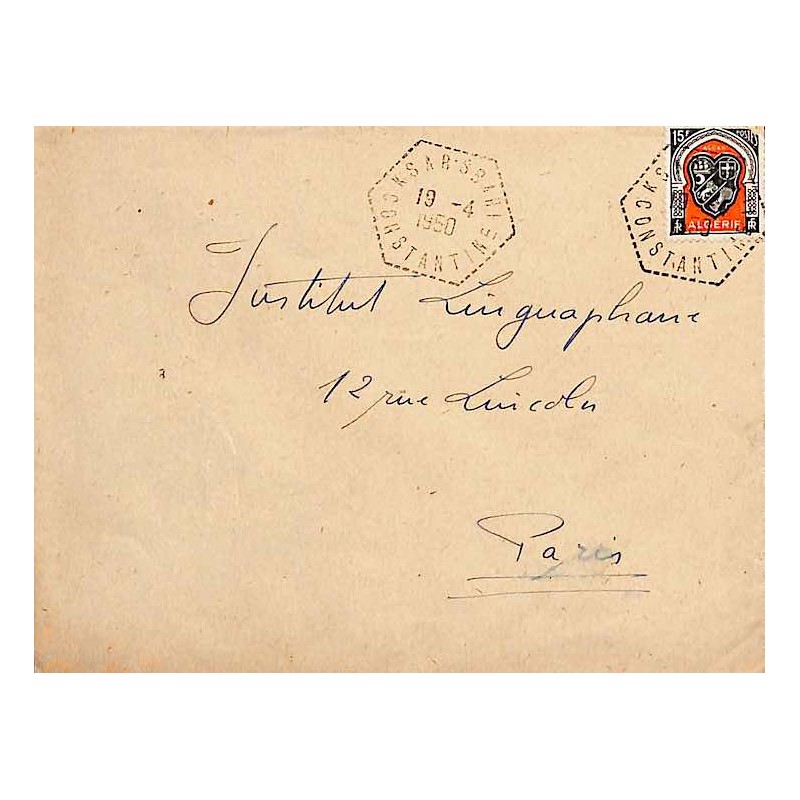 KSAR SBAHI
19 -4
1950
CONSTANTINE
15F POSTES
ALGER
ALGERIE
CONSTANTINE
Institut Linguaphone
12 rue Lincoln
Paris